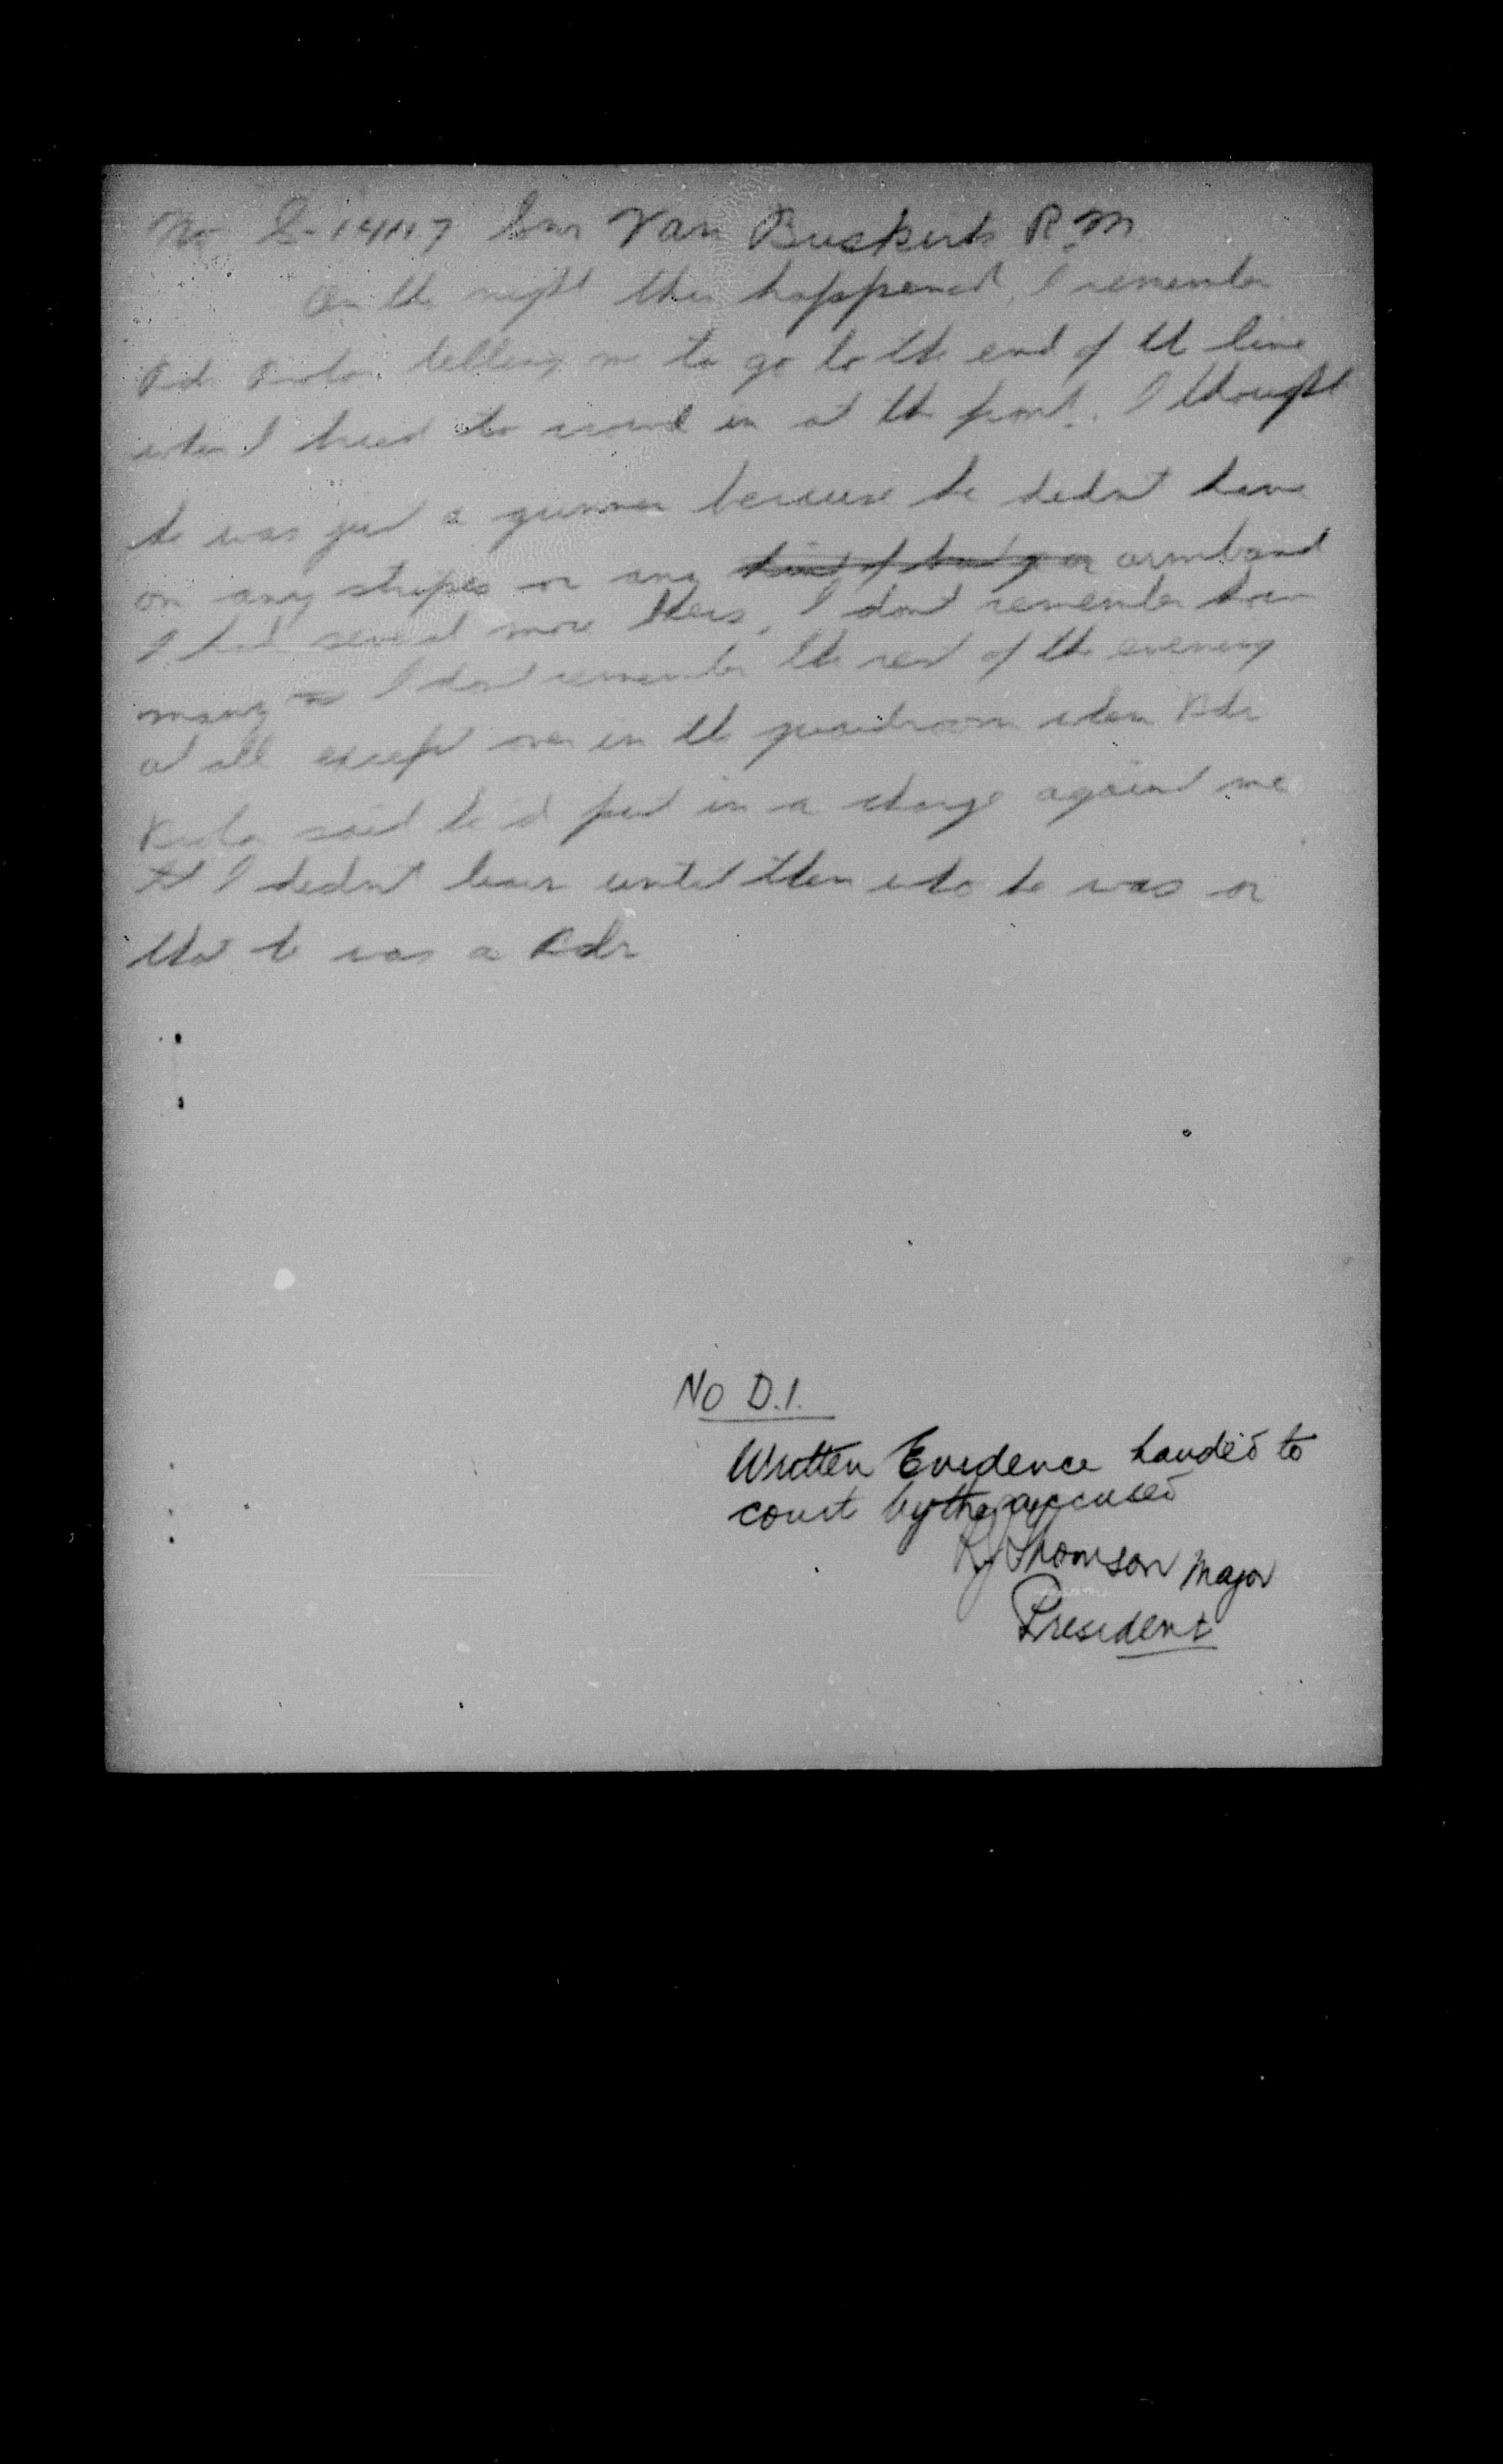 No Gnr Van Buskirk R.M
On the night this happened, I remember
Bdr telling me to go to the end of the line
when I tried to crowd in at the front. I thought
he was just a gunner because he didn't have
on any stripes or any kind of badge or armband
I had several more beers, I don't remember how
many I don't remember the rest of the evening
at all except over in the guardroom when Bdr
said he'd put in a charge against me
I didn't learn until then who he was or
that he was a Bdr
No D.1.
Written Evidence handed to
court by the accused
Thomson Major
President